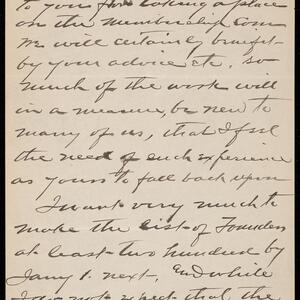 to you for taking a place
on the membership Com
We will certainly benefit
by your advice etc. so
much of the work will
in a measure, be new to
many of us, that I feel
the need of such experience
as yours to fall back upon
I want very much to
make the list of Founders
at least two hundred by
Jany 1. next, and while
I do not expect that the